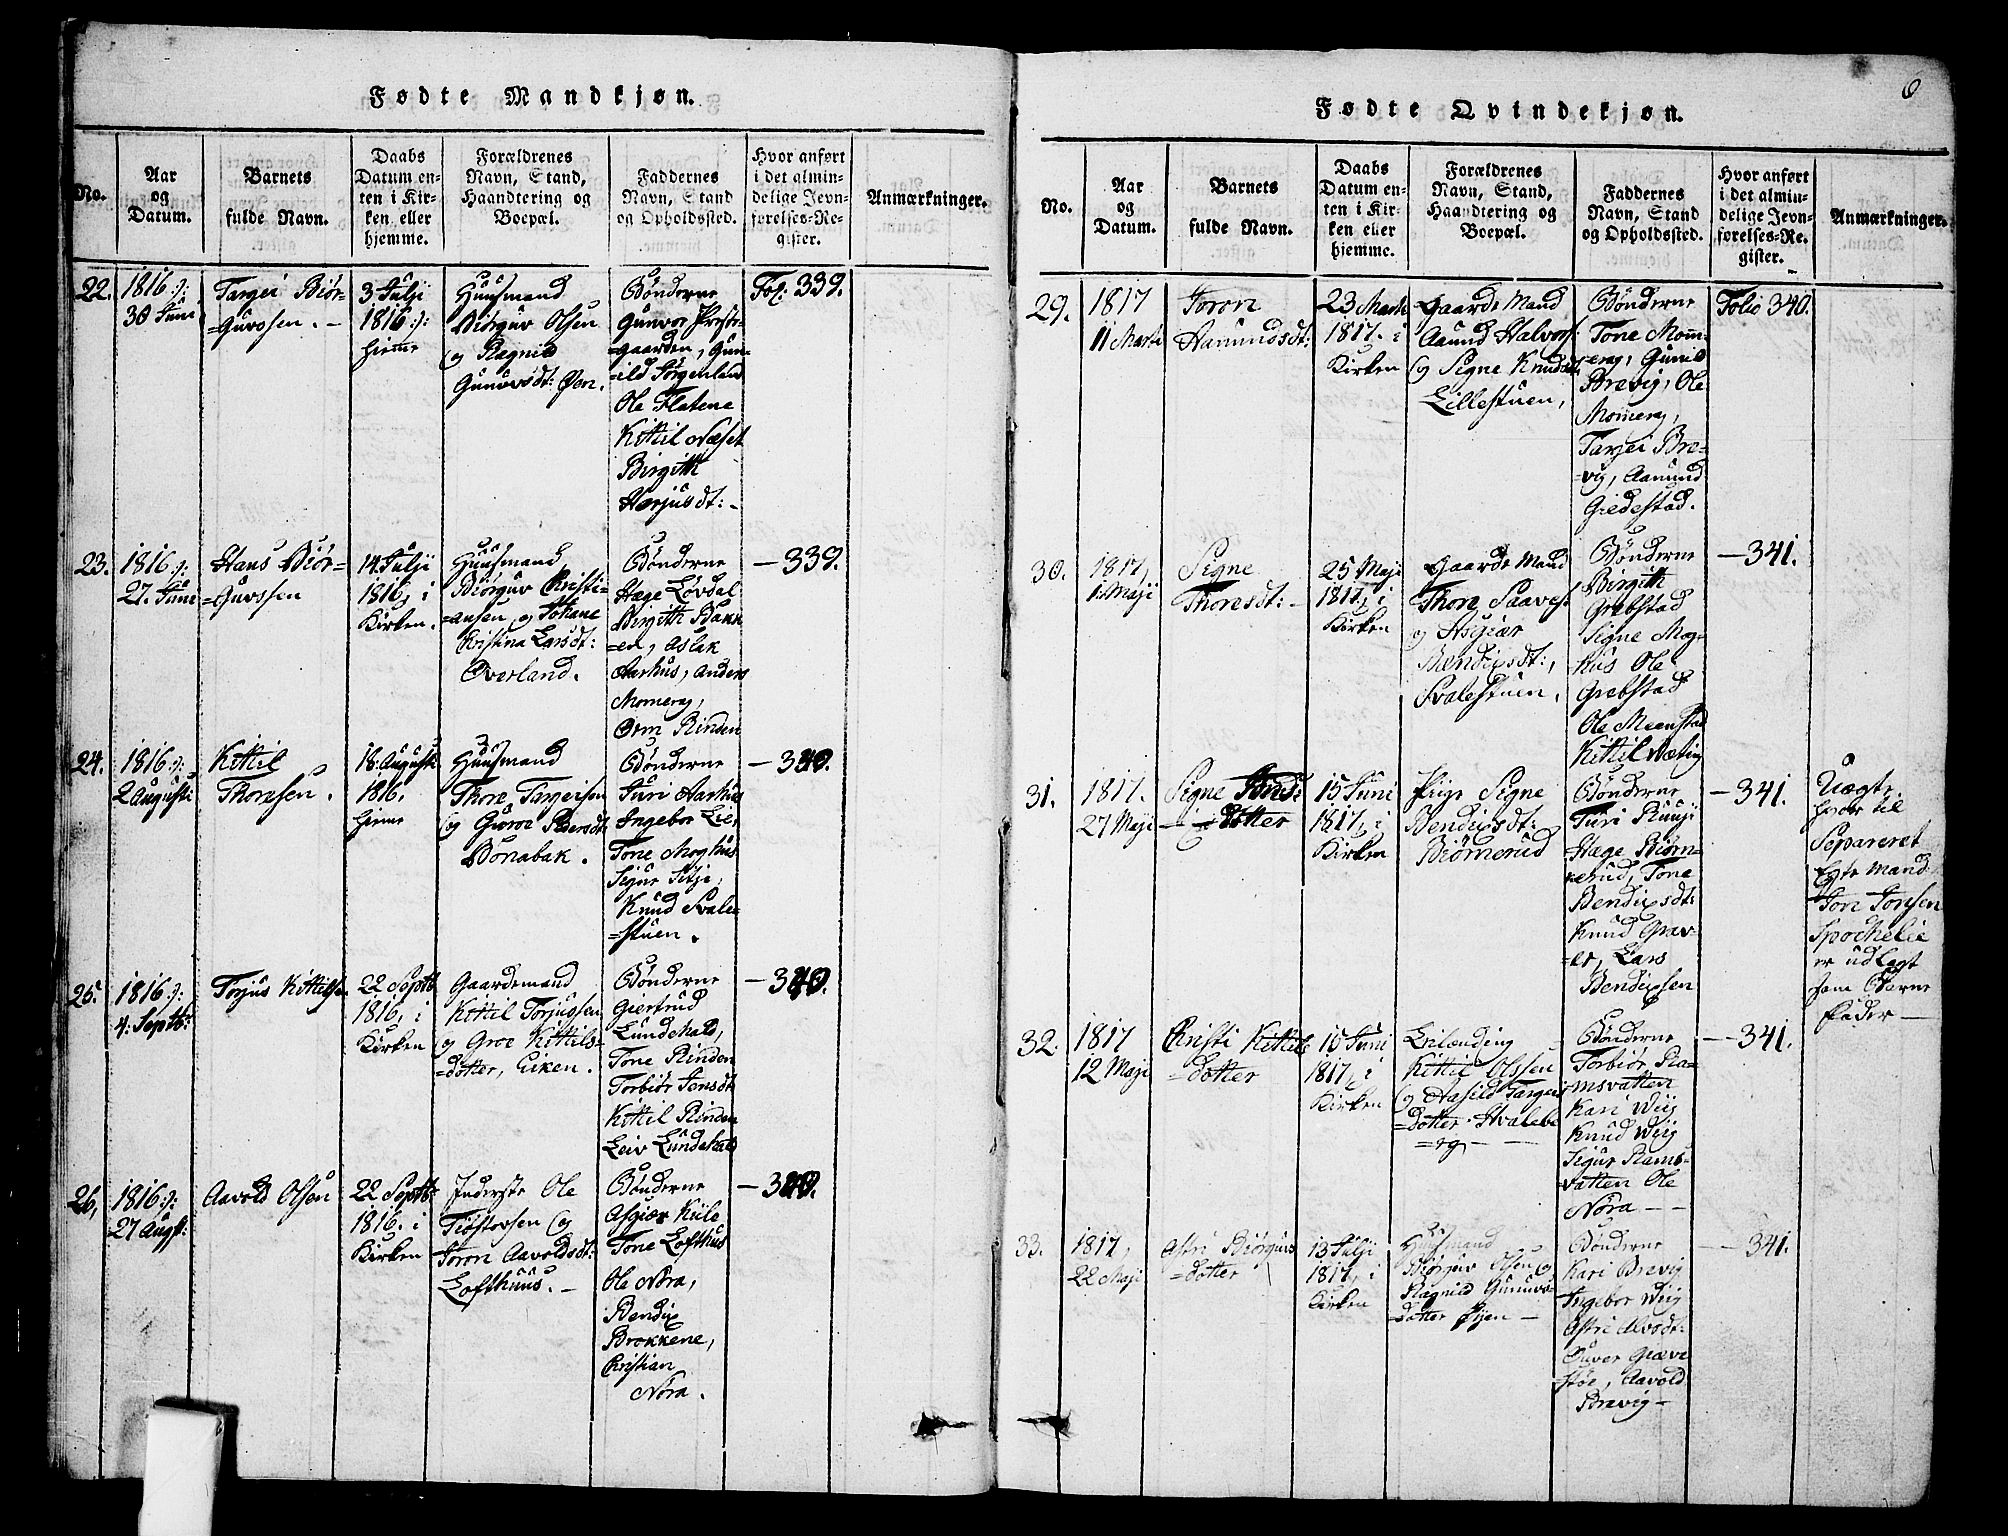 Fødte Mandkjøn.
No.
Aar
og
Datum.
Barnets
fulde Navn.
Daabs
Datum en-
ten i Kir-
ken eller
hjemme.
Forældrenes
Navn, Stand,
Haandtering og
Boepæl.
Faddernes
Navn, Stand
og Opholdssted.
Hvor anført
i det almin-
delige Jevn-
førelses-Re-
gister.
Anmærkninger.
22.
1816 :/:
30 Juni
Targei Biør-
=Guvssen. -
3 Julji
1816 :/:
hiemme
Huusmand
Biørguv Olsen
og Ragnild
Gunuvsdt: Øen.
Bønderne
Gunvor Prest-
=gaarden, Gun-
=ild Sørgenland
Ole Flatene
Kittil Næset
Birgith
Harjusdt: -
Fol: 339.
23.
1816 :/:
27. Juni
Hans Biør-
=Guvssen
14 Julji
1816, i
Kirken.
Huusmand
Biørguv Cristi-
=ansen og Johane
Kristina Larsdt:
Overland.
Bønderne
Hæge Løvdal
Birgith Bakk-
en, Aslak
Aarhus, Anders
Momrag,
Orm Rinden
- 339.
24.
1816 :/:
2 Augusti
Kittil
Thorsen.
18 Augusti
1816,
hieme
Huusmand
Thore Targeisen
og Guroe Pedersdt:
Bønabak.
Bønderne
Juri Aarhus
Ingebor Lie,
Tone Moghus
Sigur Sitje,
Knud Svale-
=stuen.
- 340.
25.
1816 :/:
4: Septb:
Torjus Kittilsen
22 Septb
1816, i
Kirken
Gaardemand
Kittil Torjussen
og Groe Kittils-
=dotter, Eiken.
Bønderne
Giertrud
Lundehald,
Tone Rinden
Torbiør Jonsdt
Kittil Rinden
Leiv Lundehald
- 340.
26,
1816 :/:
27 Augst:
Aavold Olsen
22 Septb:
1816. i
Kirken
Inderste Ole
Tiøstovsen og
Joron Aavoldsdt:
Lofthuus. -
Bønderne
Asgiær Kiile
Tone Lofthus
Ole Nora,
Bendix
Brokkene,
Cristian
Nora.
- 340.
6
Fødte Qvindekjøn.
No.
Aar
og
Datum.
Barnets
fulde Navn.
Daabs
Datum en-
ten i Kir-
ken eller
hjemme.
Forældrenes
Navn, Stand,
Haandtering og
Boepæl.
Faddernes
Navn, Stand
og Opholdssted.
Hvor anført
i det almin-
delige Jevn-
førelses-Re-
gister.
Anmærkninger.
29.
1817
11 Marti
Joron
Aamundsdt:
23 Marti
1817. i
Kirken
Gaarde Mand
Aamund Halvors:
og Signe Knudsdt.
Lillestuen,
Bønderne
Tone Mom-
=rag, Gunild
Brevig, Ole
Momrag,
Targei Bre-
=vig, Aamund
Giedestad.
Folio 340.
30.
1817,
1: Maji
Signe
Thoresdt: -
25 Maji
1817, i
Kirken
Gaarde Mand
Thore Saaves:
og Asgiær
Bendixsdt:,
Svalestuen.
Bønderne
Birgith
Grabstad
Signe Mog-
hus Ole
Grabstad
Ole Meenstad
Kittil
- 341.
31.
1817.
27 Maji
Signe
- dotter
15 Juni
1817, i
Kirken
Pige Signe
Bendixsdt:
Biørnerud
Bønderne
Turi Ruuji
Hæge Biørn-
=erud, Tone
Bendixsdt:
Knud Grav-
=er, Lars
Bendixsen
- 341.
Uægte.
hvor til
Separeret
Egte Mand
Jon Jonsen
Spockelie
er udlagt
som Barne
fader -
32.
1817
12 Maji
Cristi Kittils
=dotter
15 Juni
1817, i
Kirken
Leilænding
Kittil Olssen
og Aasild Targeis
=dotter Hvalebe
=rg -
Bønderne
Torbiør Ra-
=msvatten
Kari Wiig
Knud Wiig
Sigur Rams-
=vatten Ole
Nora - -
- 341.
33.
1817,
22 Maji
Astri Biørguvs
=dotter
13 Julji
1817, i
Kirken
Huusmand
Biørguv Olsen og
Ragnild Gunuvs-
=dotter Øyen -
Bønderne
Kari Brevig
Ingebor Wiig
Astri Alvsdt:
Guver Græve
støe, Aavold
Brevig -
- 341.